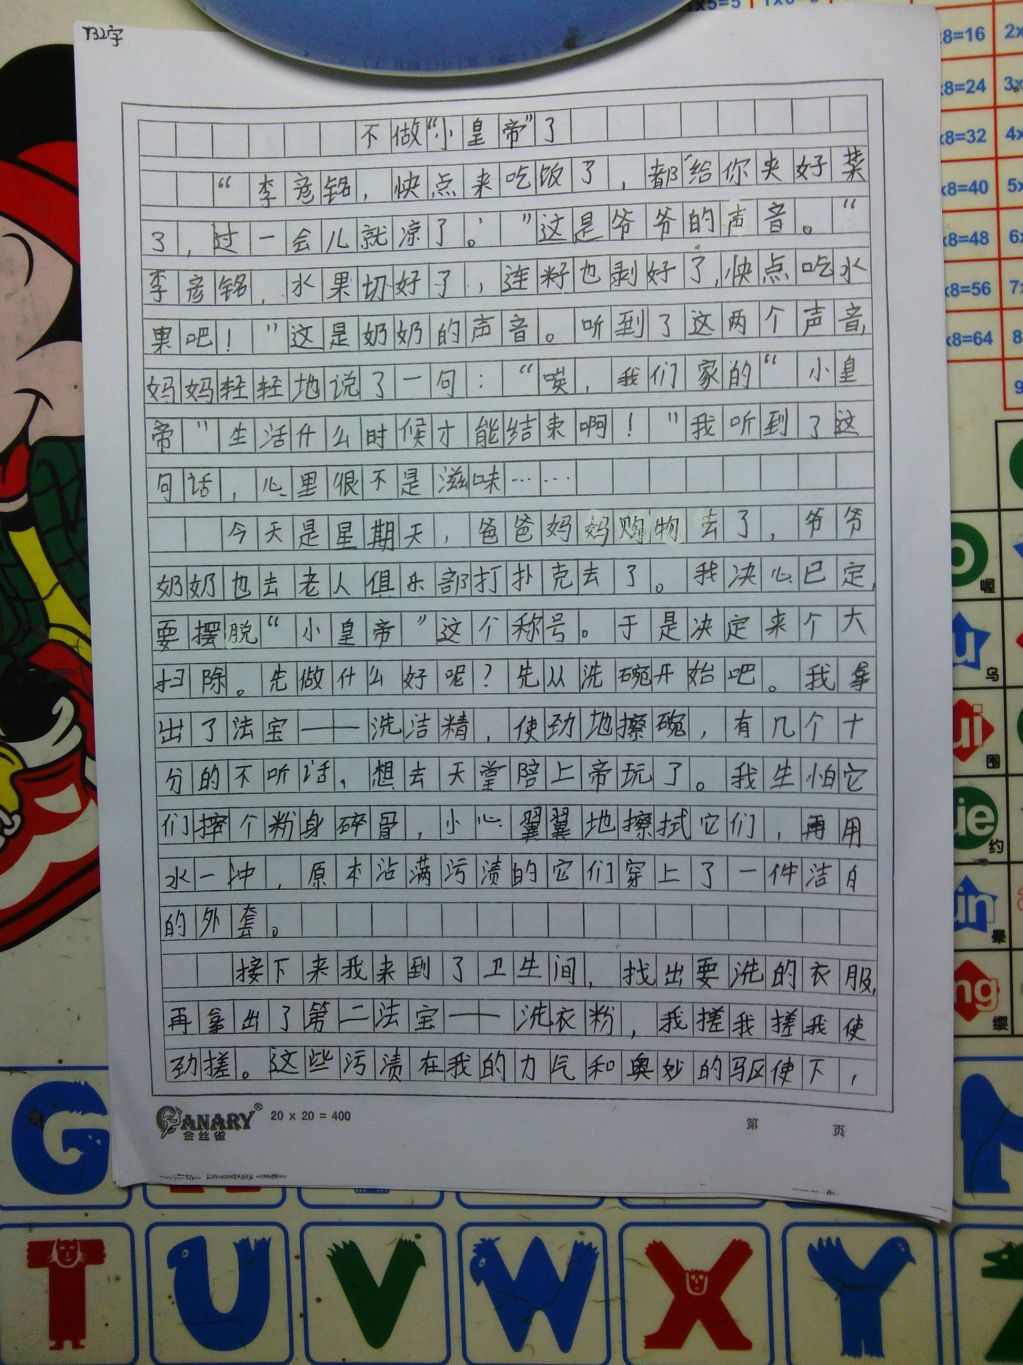 732字
不做“小皇帝”了
“李彦铭，快点来吃饭了，都给你夹好菜
了，过一会儿就凉了。”这是爷爷的声音。“
李彦铭，水果切好了，连籽也剥好了，快点吃水
果吧！”这是奶奶的声音。听到了这两个声音，
妈妈轻轻地说了一句：“唉，我们家的“小皇
帝”生活什么时候才能结束啊！”我听到了这
句话，心里很不是滋味……
今天是星期天，爸爸妈妈购物去了，爷爷
奶奶也去老人俱乐部打扑克去了。我决心已定，
要摆脱“小皇帝”这个称号。于是决定来个大
扫除。先做什么好呢？先从洗碗开始吧。我拿
出了法宝——洗洁精，使劲地擦碗，有几个十
分的不听话，想去天堂陪上帝玩了。我生怕它
们摔个粉身碎骨，小心翼翼地擦拭它们，再用
水一冲，原本沾满污渍的它们穿上了一件洁白
的外套。
接下来我来到了卫生间，找出要洗的衣服，
再拿出了第二法宝——洗衣粉，我搓我搓我使
劲搓。这些污渍在我的力气和奥妙的驱使下，
CANARY® 20 x 20 = 400 第 页
金丝雀
1x5=5
x8=16
x8=24
x8=32
x8=40
x8=48
x8=56
x8=64
喔
乌
ui
围
ie
约
ün
晕
ng
缨
G
T U V W X Y